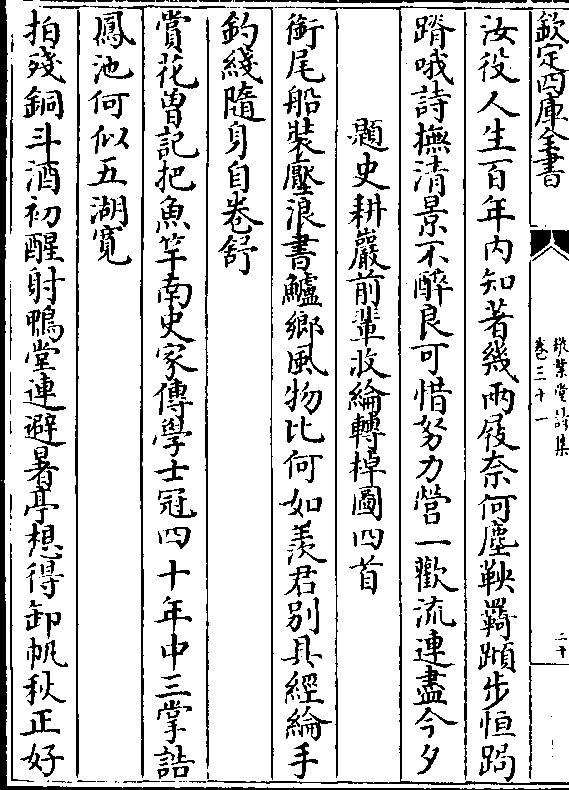 欽定四庫全書
敬業堂詩集
卷三十一
二十
汝役人生百年内知著幾兩屐奈何塵鞅羇蹞步恒跼
蹐哦詩撫清景不醉良可惜努力營一歡流連盡今夕
題史耕巖前輩收綸轉棹圖四首
銜尾船裝壓浪書鱸鄉風物比何如羡君别具經綸手
釣綫隨身自卷舒
賞花曽記把魚竿南史家傳學士冠四十年中三掌誥
鳳池何似五湖寛
拍殘銅斗酒初醒射鴨堂連避暑亭想得卸帆秋正好